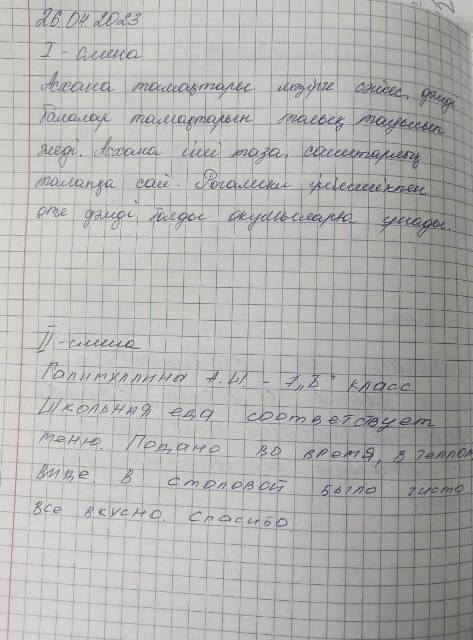 26.04.2023
I - смена
Асхана тамақтары мәзірге сәйкес, дәмді
балалар тамақтарын талғап тауысып
жеді. Асхана іші таза, санитарлық
талапқа сай. Рогалики ірімшікпен
өте дәмді болды оқушыларға ұнады.
II - смена
Галимуллина А.Ш. - 1 „Б" класс
Школьная еда соответствует
меню. Подано во время, в теплом
виде. В столовой было чисто
все вкусно. Спасибо.